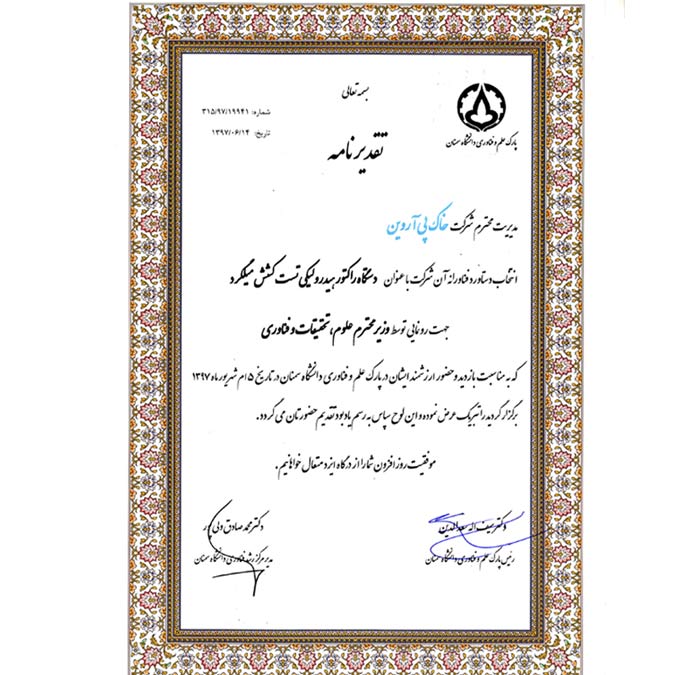 بسمه تعالی
شماره: ۳۱۵/۹۷/۱۹۹۴۱
تاریخ: ۱۳۹۷/۰۶/۱۴
پارک علم و فناوری دانشگاه سمنان
تقدیرنامه
مدیریت محترم شرکت خاک پی آروین
انتخاب دستاورد فناورانه آن شرکت با عنوان دستگاه راکتور هیدرولیکی تست کشش میلگرد
جهت رونمایی توسط وزیر محترم علوم، تحقیقات و فناوری
که به مناسبت بازدید و حضور ارزشمند ایشان در پارک علم و فناوری دانشگاه سمنان در تاریخ ۵ ام شهریور ماه ۱۳۹۷
برگزار گردید را تبریک عرض نموده و این لوح سپاس به رسم یادبود تقدیم حضورتان می گردد.
موفقیت روز افزون شما را از درگاه ایزد متعال خواهانیم.
دکتر سیف اله سعدالدین
رئیس پارک علم و فناوری دانشگاه سمنان
دکتر محمد صادق ولی پور
مدیر مرکز رشد فناوری دانشگاه سمنان